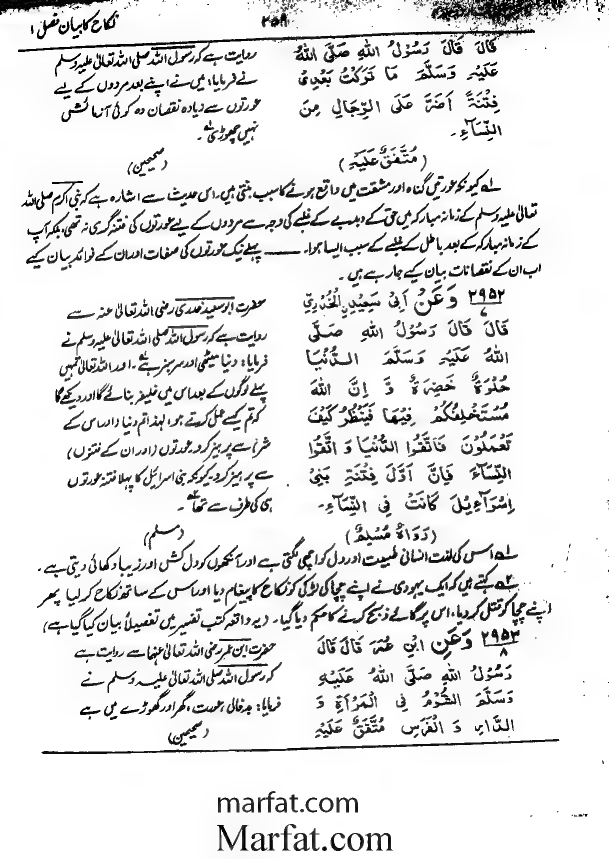 نکاح کا بیان فصل ۱
۲۵۹
قَالَ قَالَ رَسُوْلُ اللهِ صَلَّى اللهُ
عَلَيْهِ وَسَلَّمَ مَا تَرَكْتُ بَعْدِيْ
فِتْنَةً اَضَرَّ عَلَى الرِّجَالِ مِنَ
النِّسَاءِ۔
(مُتَّفَقٌ عَلَيْهِ)
روایت ہے کہ رسول اللہ صلی اللہ تعالیٰ علیہ وسلم
نے فرمایا: میں نے اپنے بعد مردوں کے لیے
عورتوں سے زیادہ نقصان دہ کوئی آزمائش
نہیں چھوڑی ۱؎۔
(صحیحین)
۱؎ کیونکہ عورتیں گناہ اور مشقت میں واقع ہونے کا سبب بنتی ہیں۔ اس حدیث سے اشارہ ہے کہ نبی اکرم صلی اللہ
تعالیٰ علیہ وسلم کے زمانہ مبارکہ میں حق کے دبدبے کے غلبے کی وجہ سے مردوں کے لیے عورتوں کی فتنہ گری نہ تھی، بلکہ آپ
کے زمانہ مبارکہ کے بعد باطل کے غلبے کے سبب ایسا ہوا۔ —— پہلے نیک عورتوں کی صفات اور ان کے فوائد بیان کیے
اب ان کے نقصانات بیان کیے جا رہے ہیں۔
۲۹۵۲ وَعَنْ اَبِيْ سَعِيْدِ الْخُدْرِيِّ
۷
قَالَ قَالَ رَسُوْلُ اللهِ صَلَّى
اللهُ عَلَيْهِ وَسَلَّمَ الدُّنْيَا
حُلْوَةٌ خَضِرَةٌ وَ اِنَّ اللهَ
مُسْتَخْلِفُكُمْ فِيْهَا فَيَنْظُرُ كَيْفَ
تَعْمَلُوْنَ فَاتَّقُوا الدُّنْيَا وَ اتَّقُوا
النِّسَاءَ فَاِنَّ اَوَّلَ فِتْنَةِ بَنِيْ
اِسْرَآءِيْلَ كَانَتْ فِي النِّسَاءِ۔
(رَوَاهُ مُسْلِمٌ)
حضرت ابو سعید خدری رضی اللہ تعالیٰ عنہ سے
روایت ہے کہ رسول اللہ صلی اللہ تعالیٰ علیہ وسلم نے
فرمایا: دنیا میٹھی اور سرسبز ہے ۱؎۔ اور اللہ تعالیٰ تمہیں
پہلے لوگوں کے بعد اس میں خلیفہ بنائے گا اور دیکھے گا
کہ تم کیسے عمل کرتے ہو لہٰذا تم دنیا اور اس کے
شر سے پرہیز کرو، عورتوں (اور ان کے فتنوں)
سے پرہیز کرو۔ کیونکہ بنی اسرائیل کا پہلا فتنہ عورتوں
ہی کی طرف سے تھا ۲؎۔
(مسلم)
۱؎ اس کی لذت انسانی طبیعت اور دل کو اچھی لگتی ہے اور آنکھوں کو دلکش اور زیبا دکھائی دیتی ہے۔
۲؎ کہتے ہیں کہ ایک یہودی نے اپنے چچا کی لڑکی کو نکاح کا پیغام دیا اور اس کے ساتھ نکاح کر لیا پھر
اپنے چچا کو قتل کر دیا، اس پر گائے ذبح کرنے کا حکم دیا گیا۔ (یہ واقعہ کتب تفسیر میں تفصیلاً بیان کیا گیا ہے)
۲۹۵۳ وَعَنِ ابْنِ عُمَرَ قَالَ قَالَ
۸
رَسُوْلُ اللهِ صَلَّى اللهُ عَلَيْهِ
وَسَلَّمَ الشُّؤْمُ فِي الْمَرْأَةِ وَ
الدَّارِ وَ الْفَرَسِ مُتَّفَقٌ عَلَيْهِ
حضرت ابن عمر رضی اللہ تعالیٰ عنہما سے روایت ہے
کہ رسول اللہ صلی اللہ تعالیٰ علیہ وسلم نے
فرمایا: بدفالی عورت، گھر اور گھوڑے میں ہے
(صحیحین)
marfat.com
Marfat.com